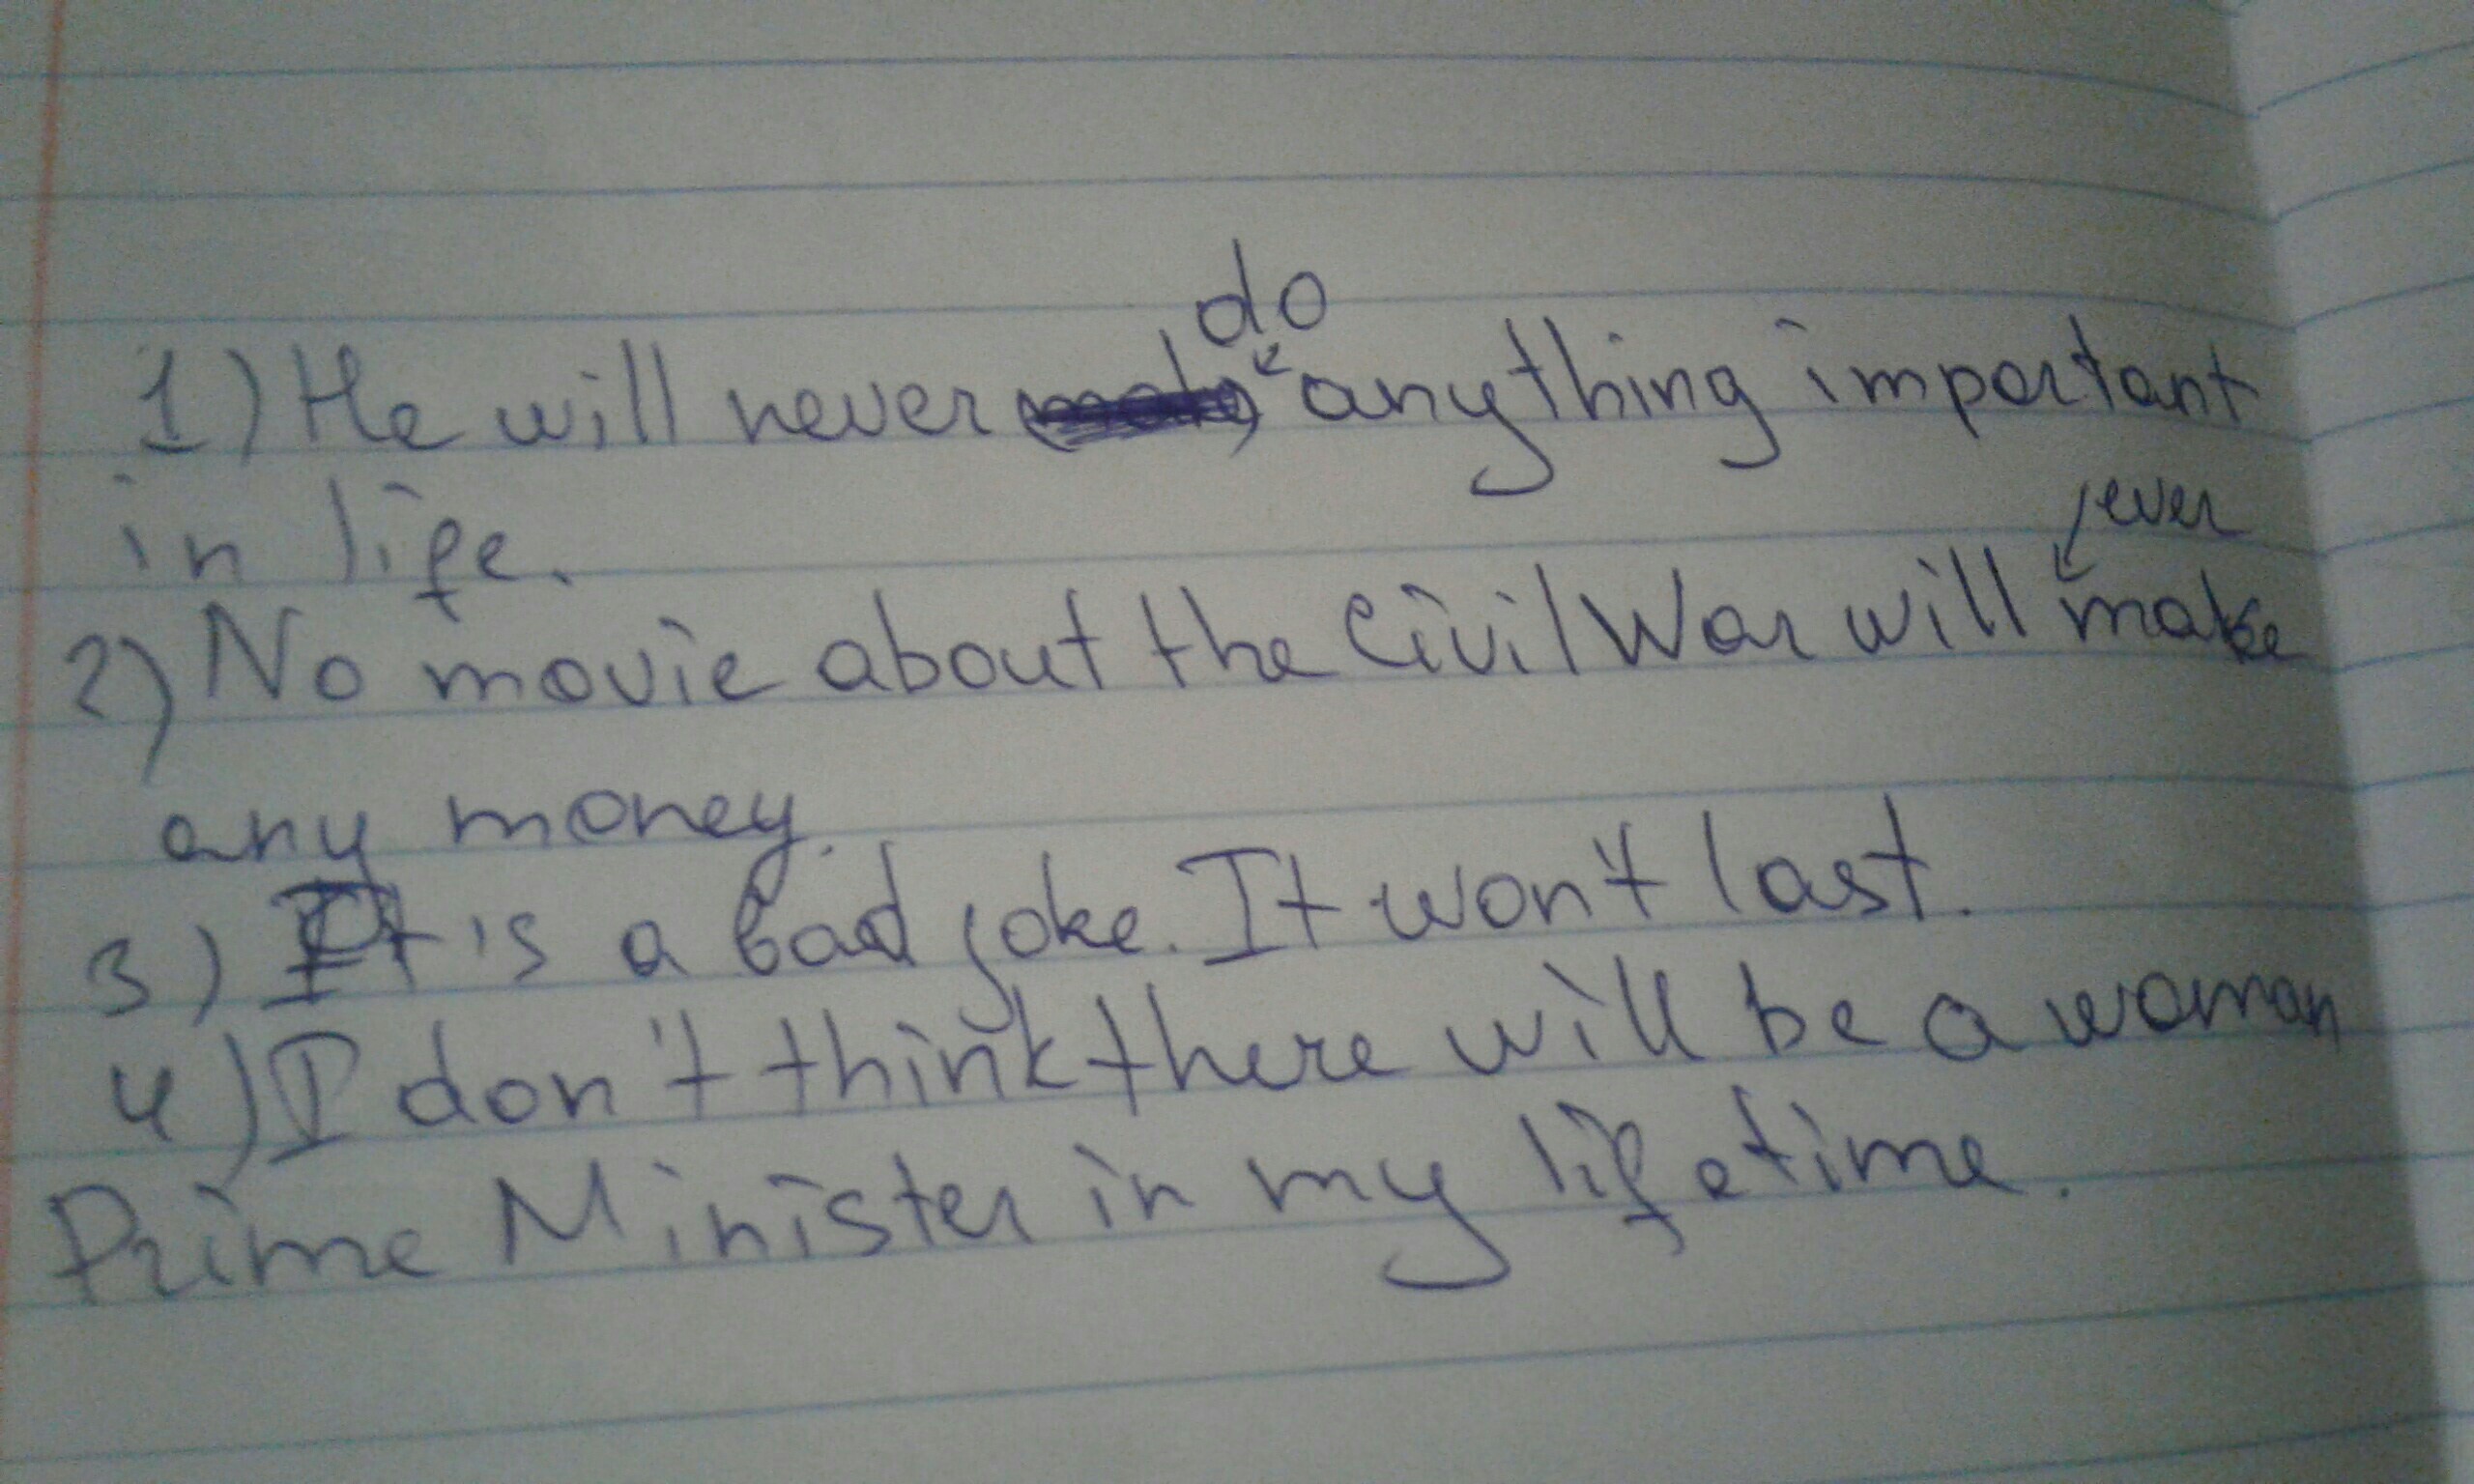 do
1) He will never anything important
in life.
ever
2) No movie about the Civil War will make
any money.
3) It is a bad joke. It won't last.
4) I don't think there will be a woman
Prime Minister in my lifetime.